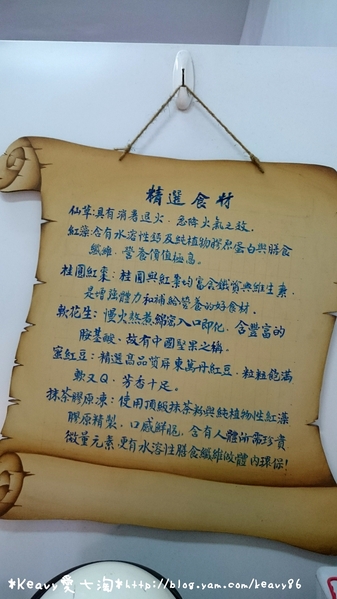 精選食材
仙草:具有消暑退火、急降火氣之效.
紅藻:含有水溶性鈣及純植物膠原蛋白與膳食
纖維,營養價值極高。
桂圓紅棗:桂圓與紅棗均富含鐵質與維生素
是增強體力和補給營養的好食材.
軟花生:慢火熬煮綿密入口即化.含豐富的
胺基酸、故有中國堅果之稱。
蜜紅豆:精選高品質屏東萬丹紅豆,粒粒飽滿
軟又Q,芳香十足。
抹茶膠原凍:使用頂級抹茶粉與純植物性紅藻
膠原精製、口感鮮脆,含有人體所需珍貴
微量元素,更有水溶性膳食纖維做體內環保!
*Keavy愛七淘*http://blog.yam.com/keavy86